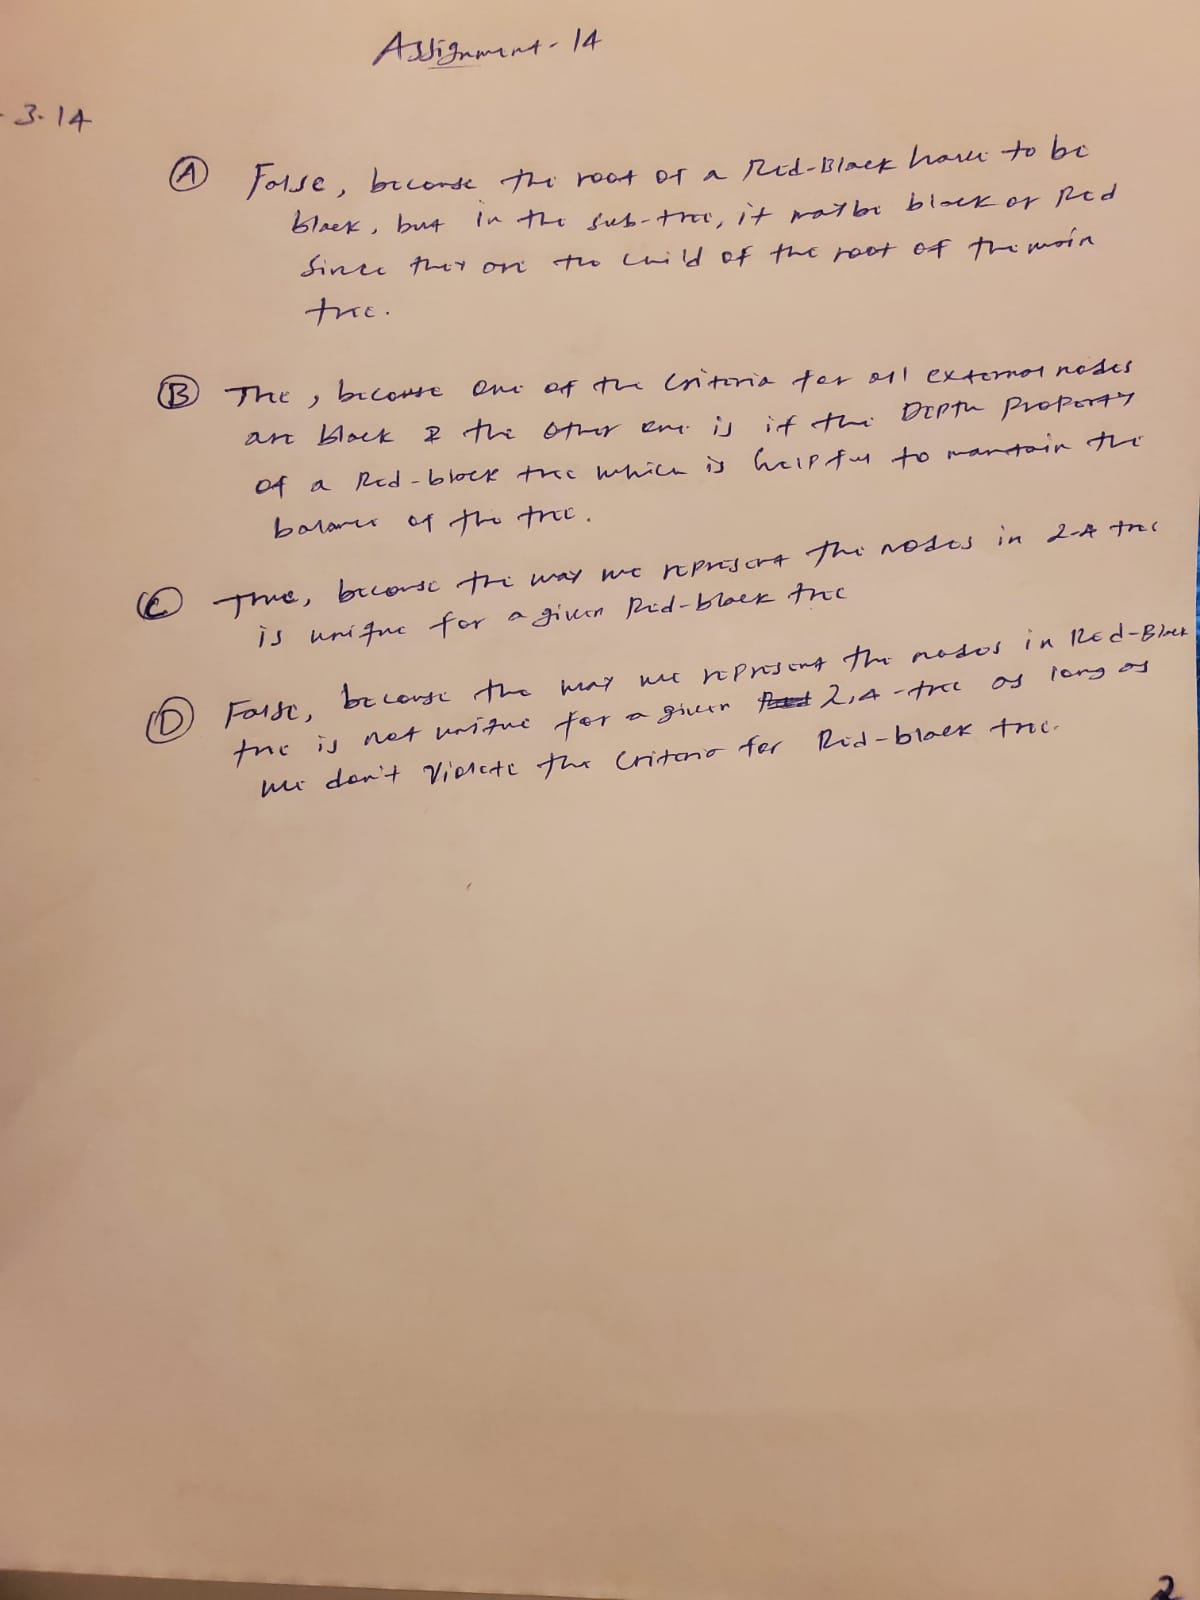 Assignment - 14
- 3.14
(A) False, because the root of a Red-Black have to be
black, but in the sub-tree, it maybe black or Red
Since they are the child of the root of the main
tree.
(B) The, because one of the criteria for all external nodes
are black & the other one is if the Depth Property
of a Red-black tree which is helpful to maintain the
balance of the tree.
(C) True, because the way we represent the nodes in 2-4 tree
is unique for a given Red-black tree
(D) False, because the way we represent the nodes in Red-Black
tree is not unique for a given 2,4-tree as long as
we don't violate the criteria for Red-black tree.
2